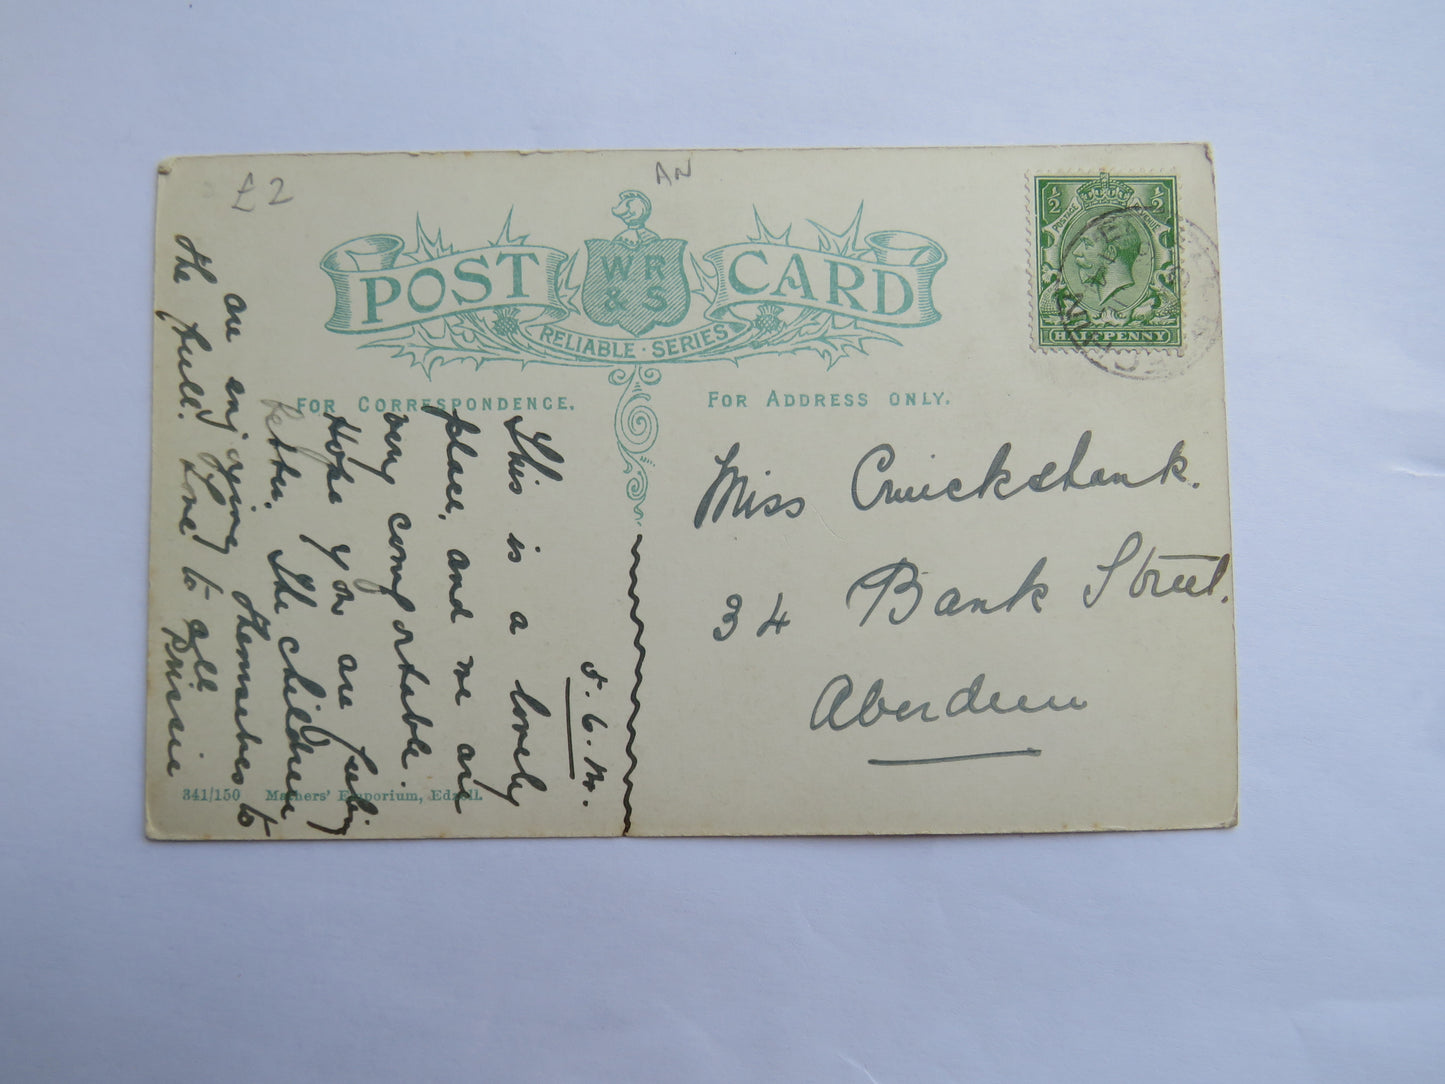 £2
AN
POST CARD
WR
& S
RELIABLE · SERIES
FOR CORRESPONDENCE.
FOR ADDRESS ONLY.
½ ½
POSTAGE REVENUE
HALFPENNY
Miss Cruickshank.
34 Bank Street.
Aberdeen
This is a lovely
place, and we are
very comfortable.
Hope you are feeling
better. The children
are enjoying themselves to
the full. Love to all
341/150 Mathers' Emporium, Edzell.